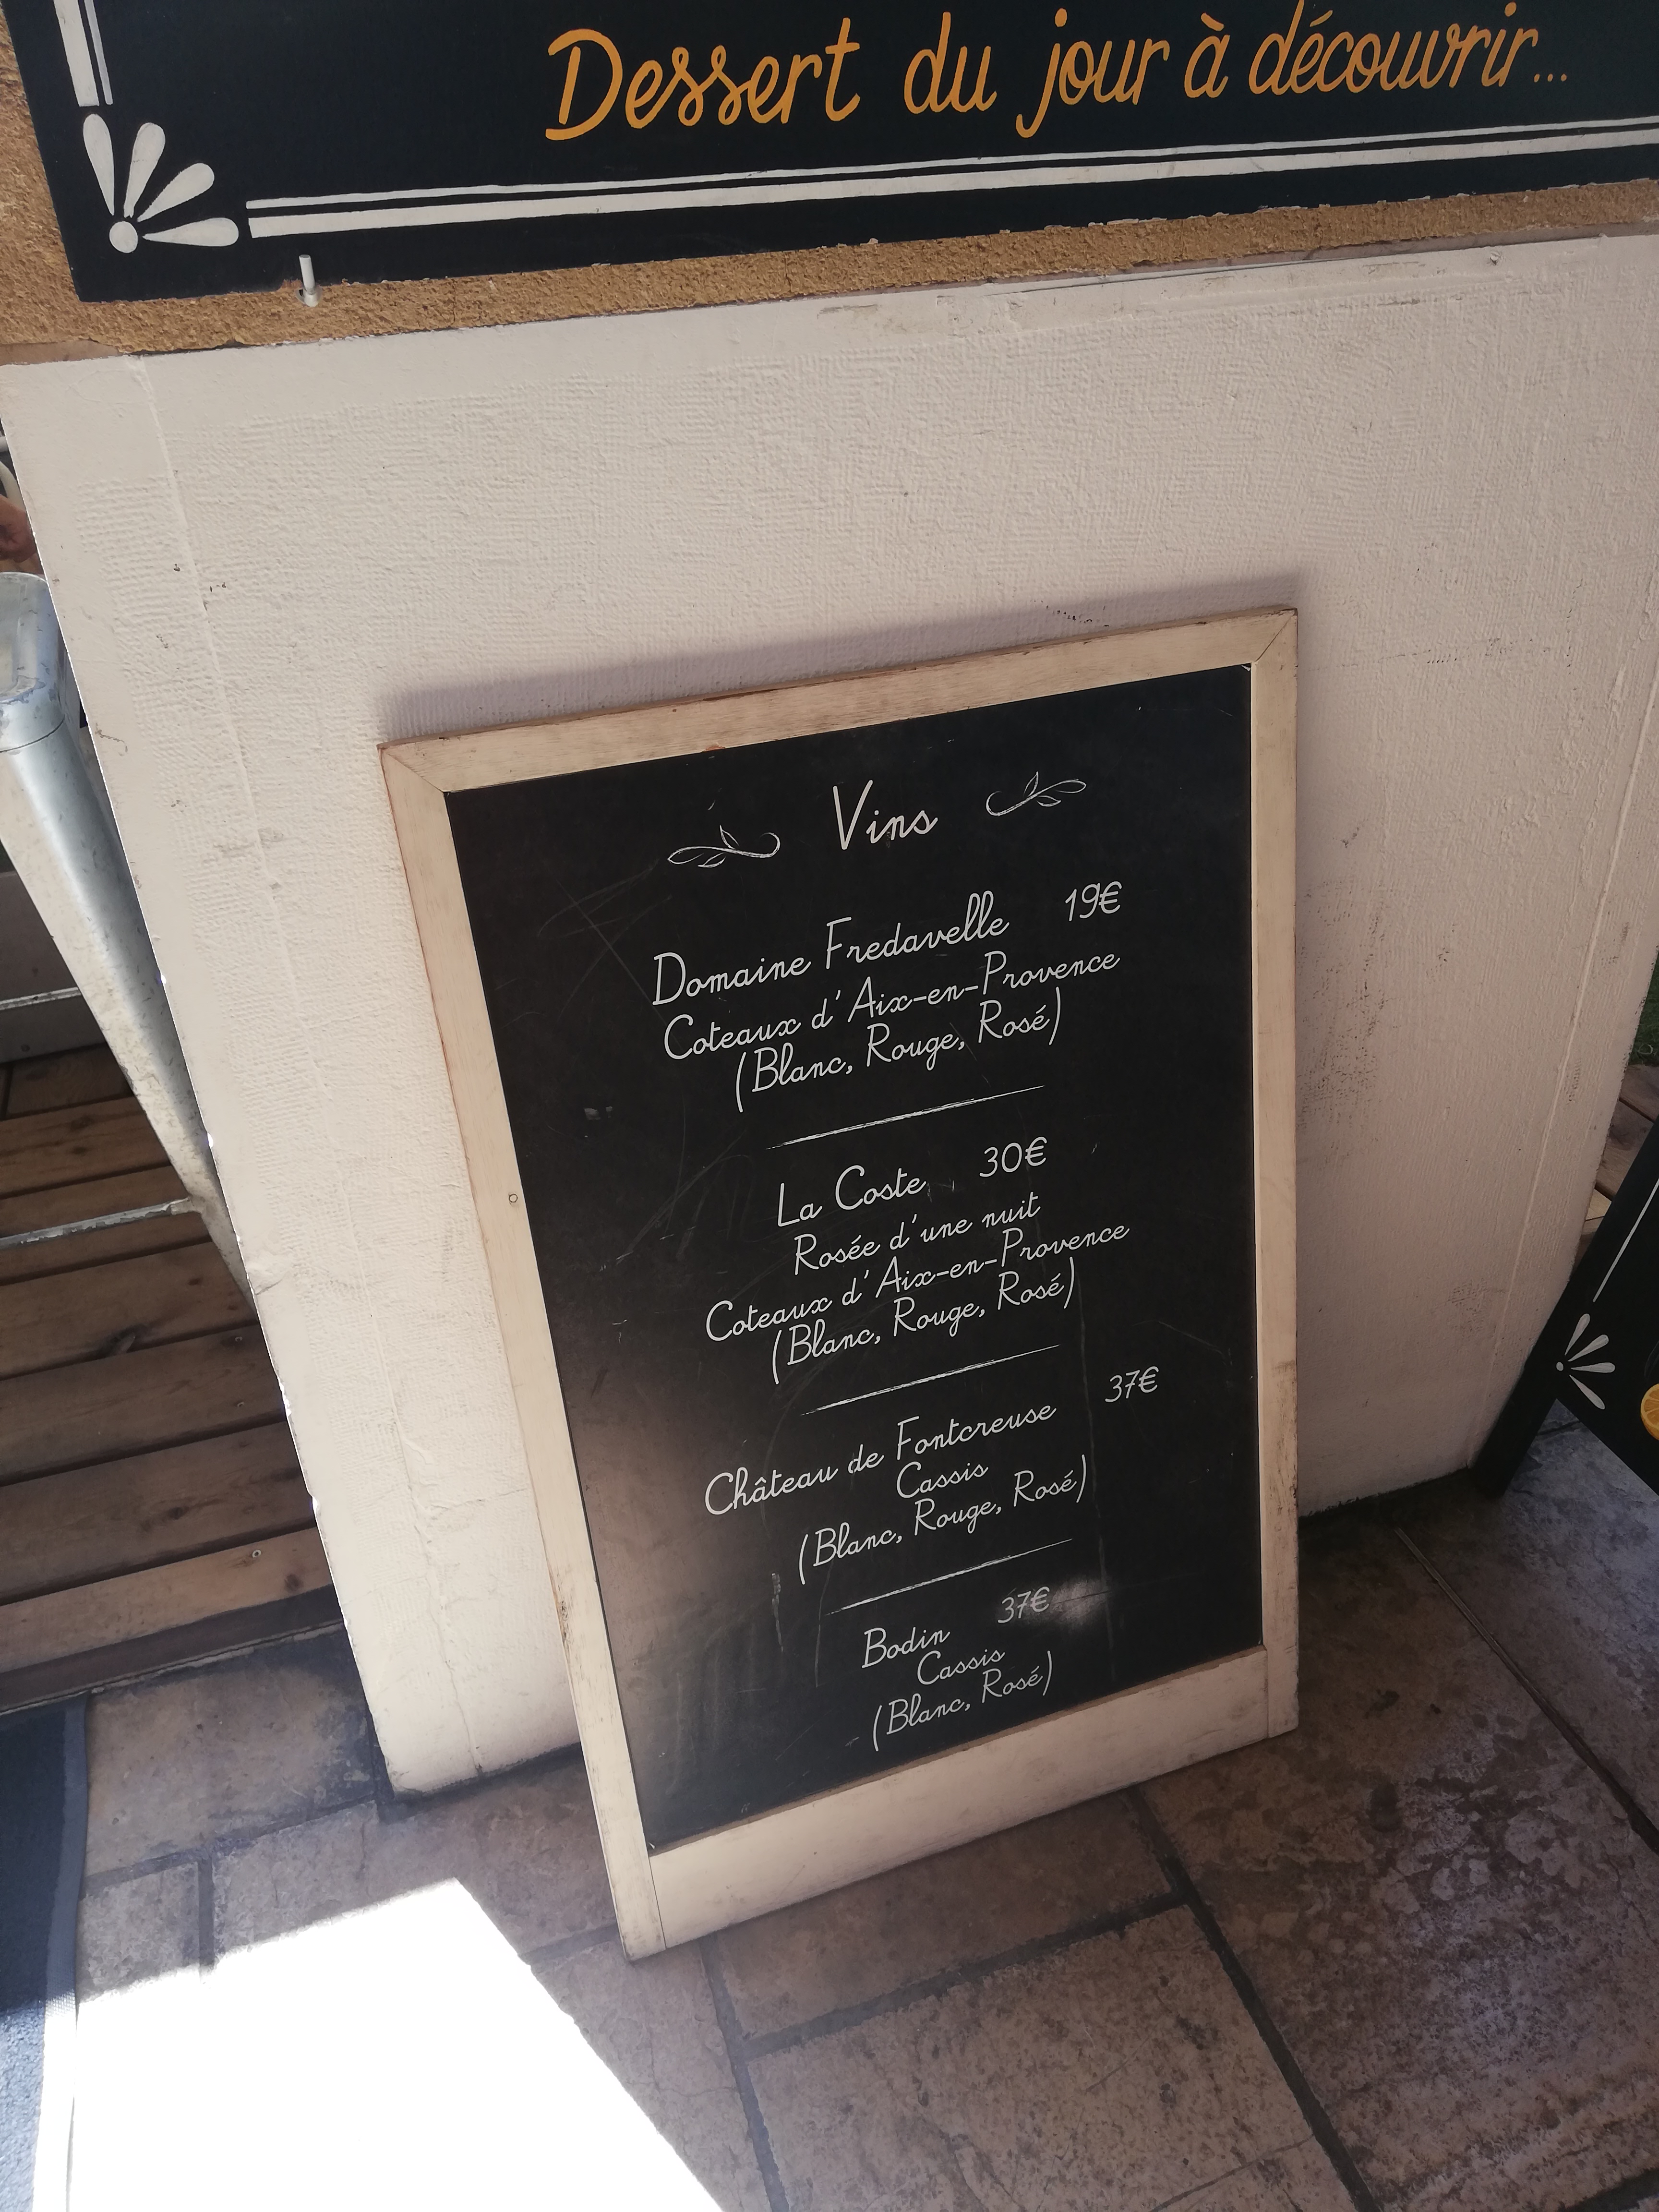 Dessert du jour à découvrir...
Vins
Domaine Fredavelle 19€
Coteaux d'Aix-en-Provence
(Blanc, Rouge, Rosé)
La Coste 30€
Rosée d'une nuit
Coteaux d'Aix-en-Provence
(Blanc, Rouge, Rosé)
Château de Fontcreuse 37€
Cassis
(Blanc, Rouge, Rosé)
Bodin 37€
Cassis
(Blanc, Rosé)